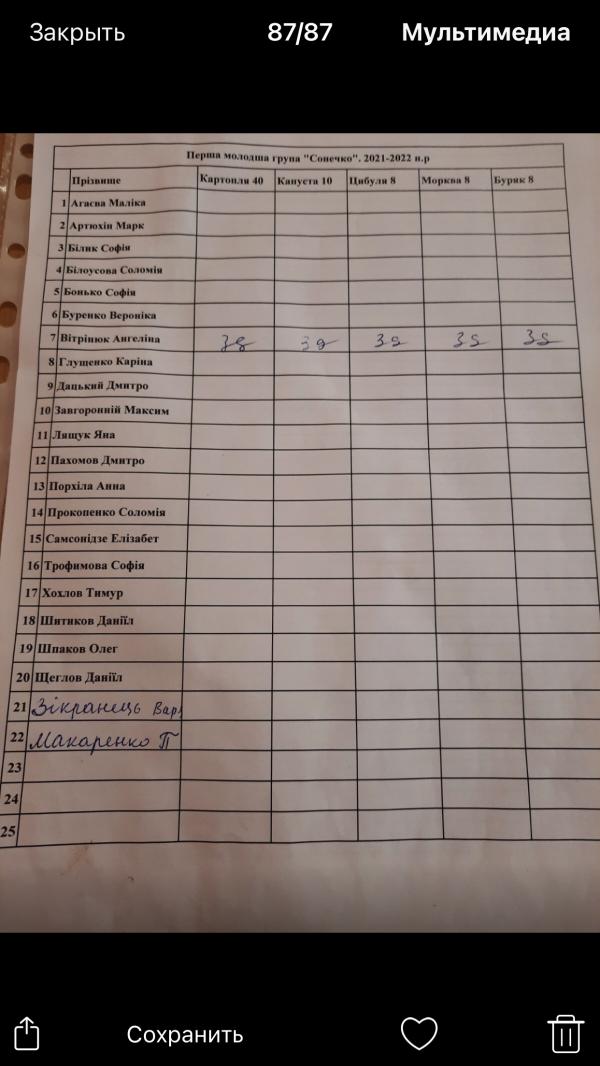 Закрыть 87/87 Мультимедиа
Перша молодша група "Сонечко". 2021-2022 н.р
Прізвище Картопля 40 Капуста 10 Цибуля 8 Морква 8 Буряк 8
1 Агаєва Маліка
2 Артюхін Марк
3 Білик Софія
4 Білоусова Соломія
5 Бонько Софія
6 Буренко Вероніка
7 Вітрінюк Ангеліна
8 Глущенко Каріна
9 Дацький Дмитро
10 Завгоронній Максим
11 Лящук Яна
12 Пахомов Дмитро
13 Порхіла Анна
14 Прокопенко Соломія
15 Самсонідзе Елізабет
16 Трофимова Софія
17 Хохлов Тимур
18 Шитиков Даніїл
19 Шпаков Олег
20 Щеглов Даніїл
21 Зікранець Вар
22 Макаренко П
23
24
25
Сохранить